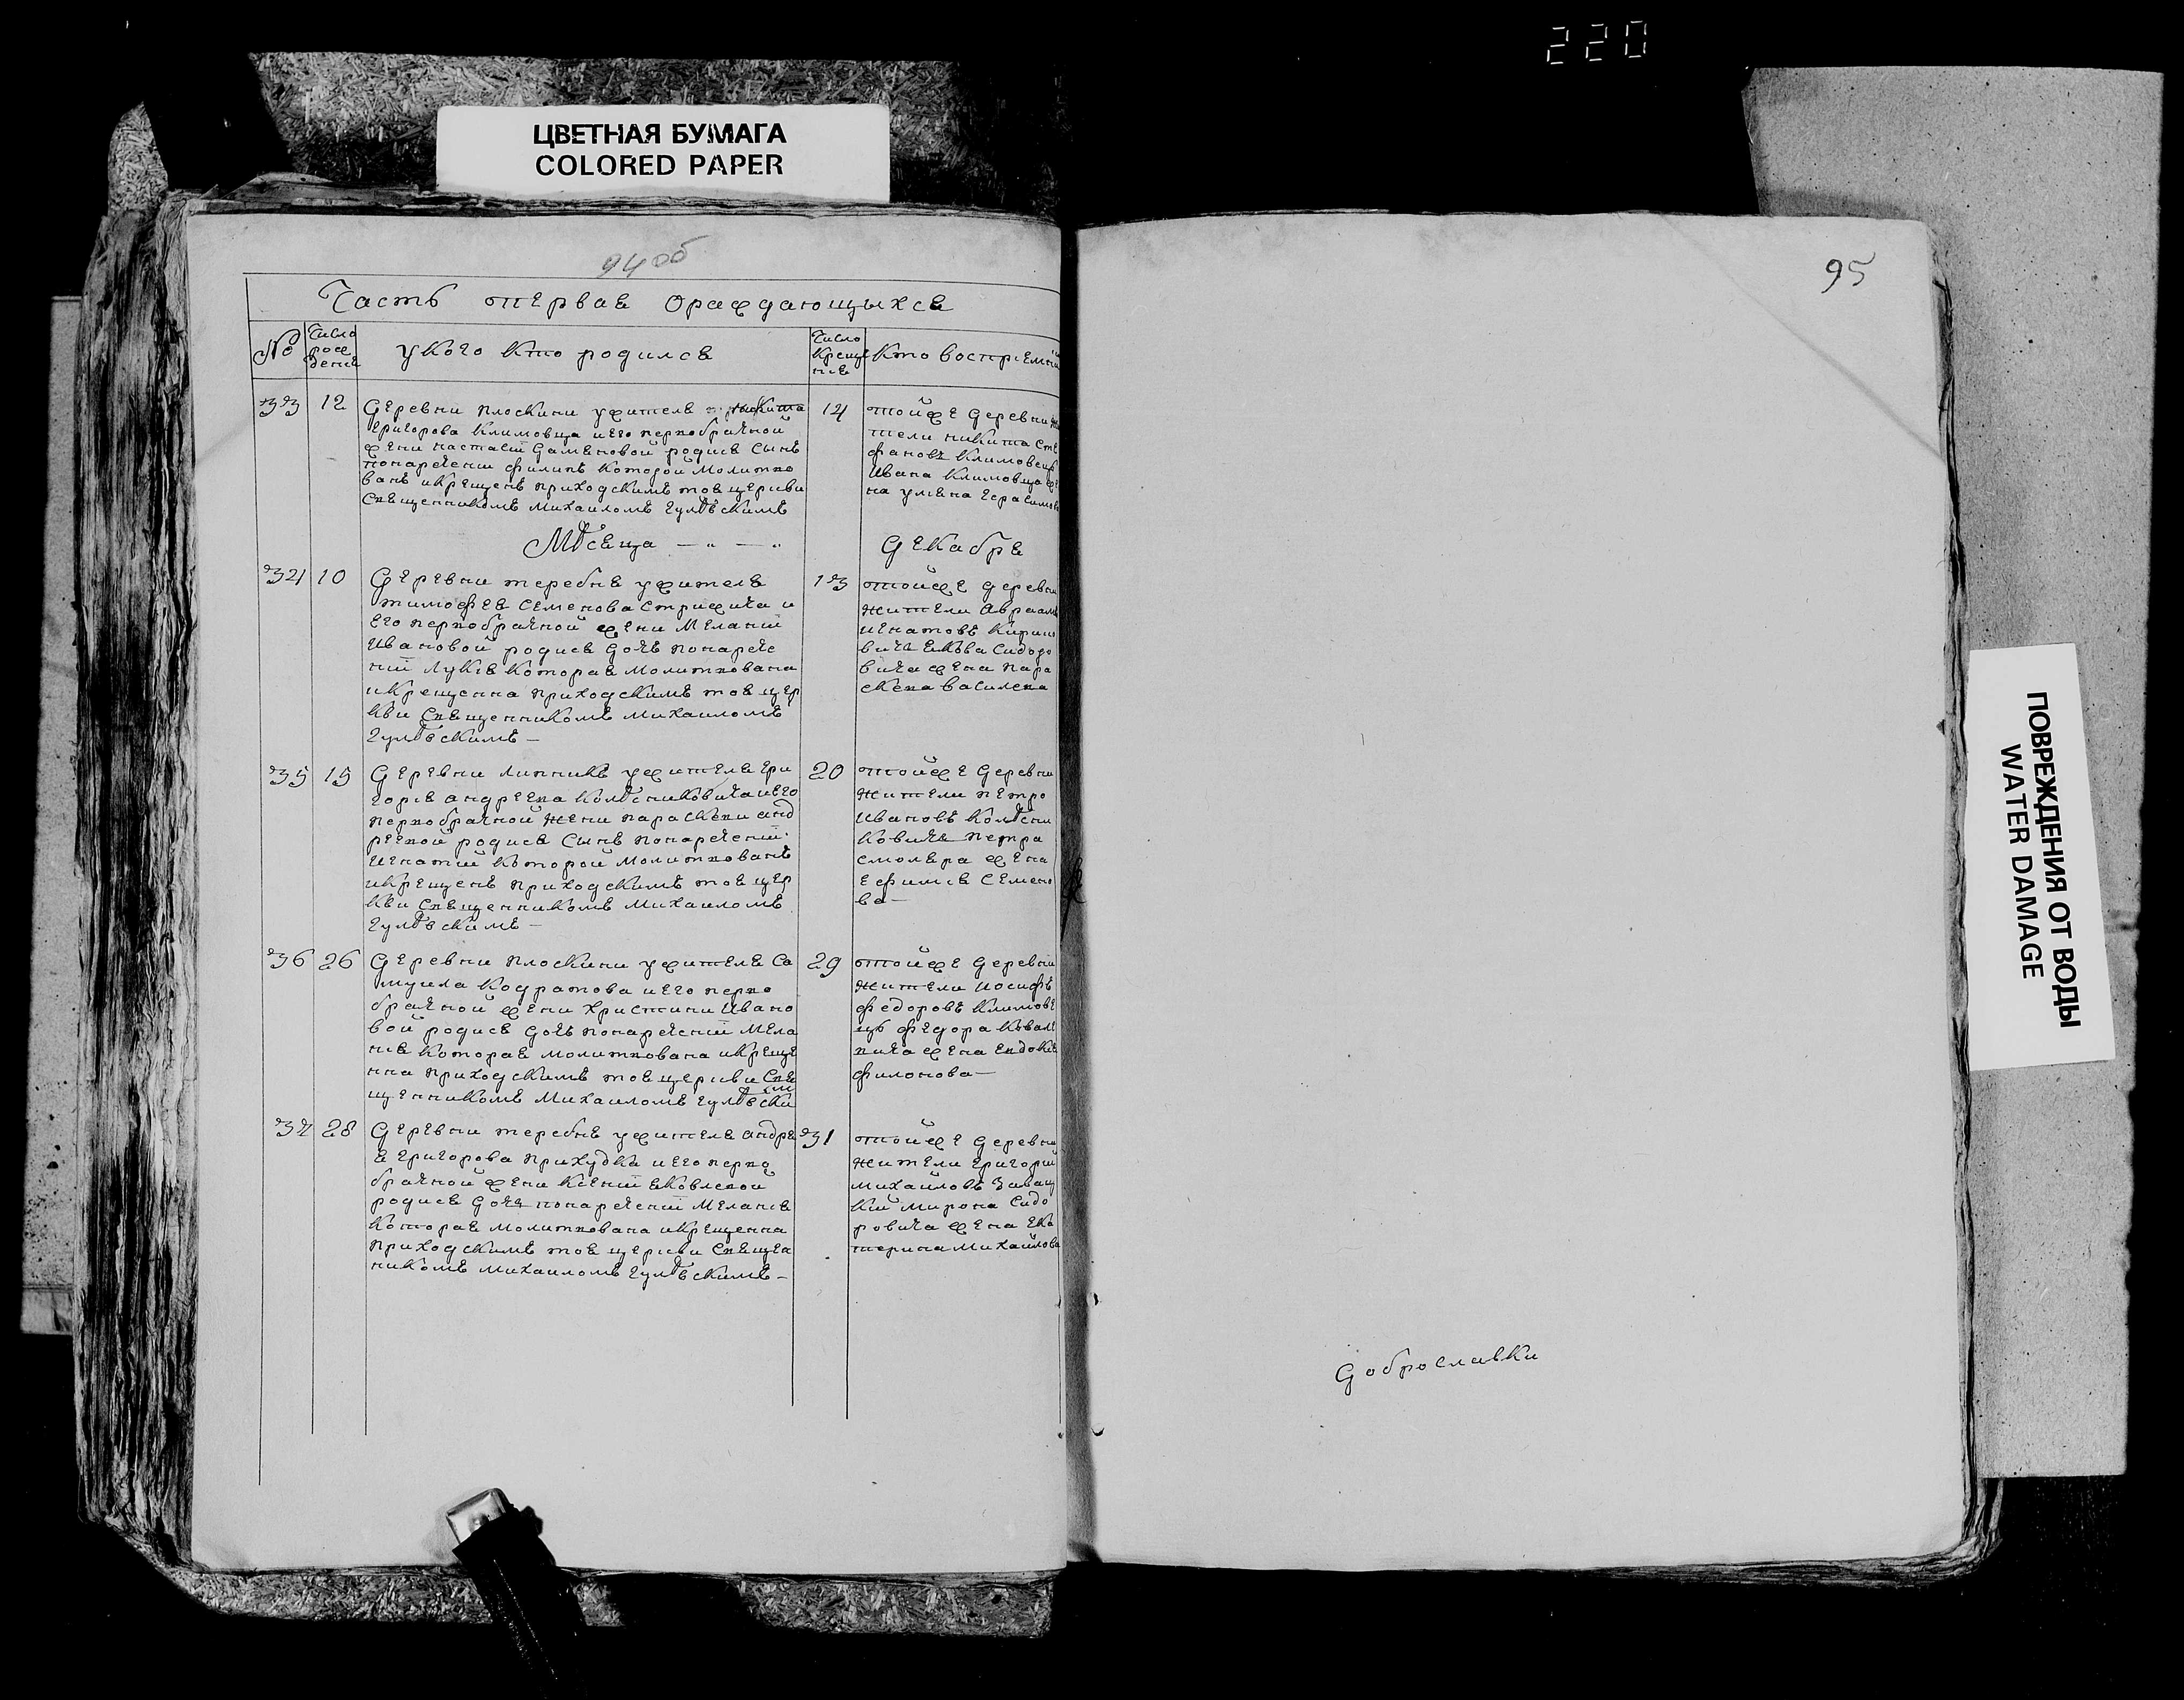 220
ЦВЕТНАЯ БУМАГА
COLORED PAPER
94 об
95
Часть первая ораждающыхся
№
Число рожденія
у кого кто родился
Число крещенія
Кто воспріемни
33
12
Деревни Плоскини ужителя
Григорова Климовца иего первобрачной
жени Настасіи Дамяновой родися Сынъ
понареченіи Филипъ Которой Молитво
ванъ икрещенъ приходскимъ тоя церкви
Священникомъ Михаиломъ Гулѣвскимъ
14
Тойже Деревни жи
тели Никита Сте
фановъ Климовецъ
Ивана Климовца же
на Уляна Герасимова
Мѣсеца — „ — „ Декабря
34
10
Деревни Теребня ужителя
Тимофея Семенова Стрижича и
Его первобрачной жени Меланіи
Ивановой родися дочь понарече
ніи Лукія Которая Молитвована
икрещенна приходскимъ тоя цер
кви Священникомъ Михаиломъ
Гулѣвскимъ —
13
Тойже Деревни
Жители Авраамъ
Игнатовъ Кирило
вичъ Якова Сидоро
вича жена Пара
скева Василева
35
15
Деревни Липники ужителя Гри
горія Андреева Колѣсниковича иего
первобрачной жени Параскеви Анд
реевой родися Сынъ понареченіи
Игнатий Которой Молитвованъ
икрещенъ приходскимъ тоя цер
кви Священникомъ Михаиломъ
Гулѣвскимъ —
20
Тойже Деревни
Жители Петро
Ивановъ Колѣсни
ковичъ Петра
Смоляра жена
Ефимія Семено
ва —
36
26
Деревни Плоскини ужителя Са
муила Кодратова иего перво
брачной жени Христини Ивано
вой родися дочь понареченіи Мела
нія Которая Молитвована икреще
нна приходскимъ тоя церкви Свя
щенникомъ Михаиломъ Гулѣвским
29
Тойже Деревни
Жители Иосифъ
Федоровъ Климове
цъ Федора Ковале
вича жена Евдокія
Филонова —
37
28
Деревни Теребня ужителя Андре
я Григорова Прихудка иего перво
брачной жени Ксеніи Яковлевой
родися дочь понареченіи Меланія
Которая Молитвована икрещенна
приходскимъ тоя церкви Священ
никомъ Михаиломъ Гулѣвскимъ —
31
Тойже Деревни
Жители Григорий
Михайловъ Завац
кий Мирона Сидо
ровича жена Ека
терина Михайлова
Доброславки
ПОВРЕЖДЕНИЯ ОТ ВОДЫ
WATER DAMAGE